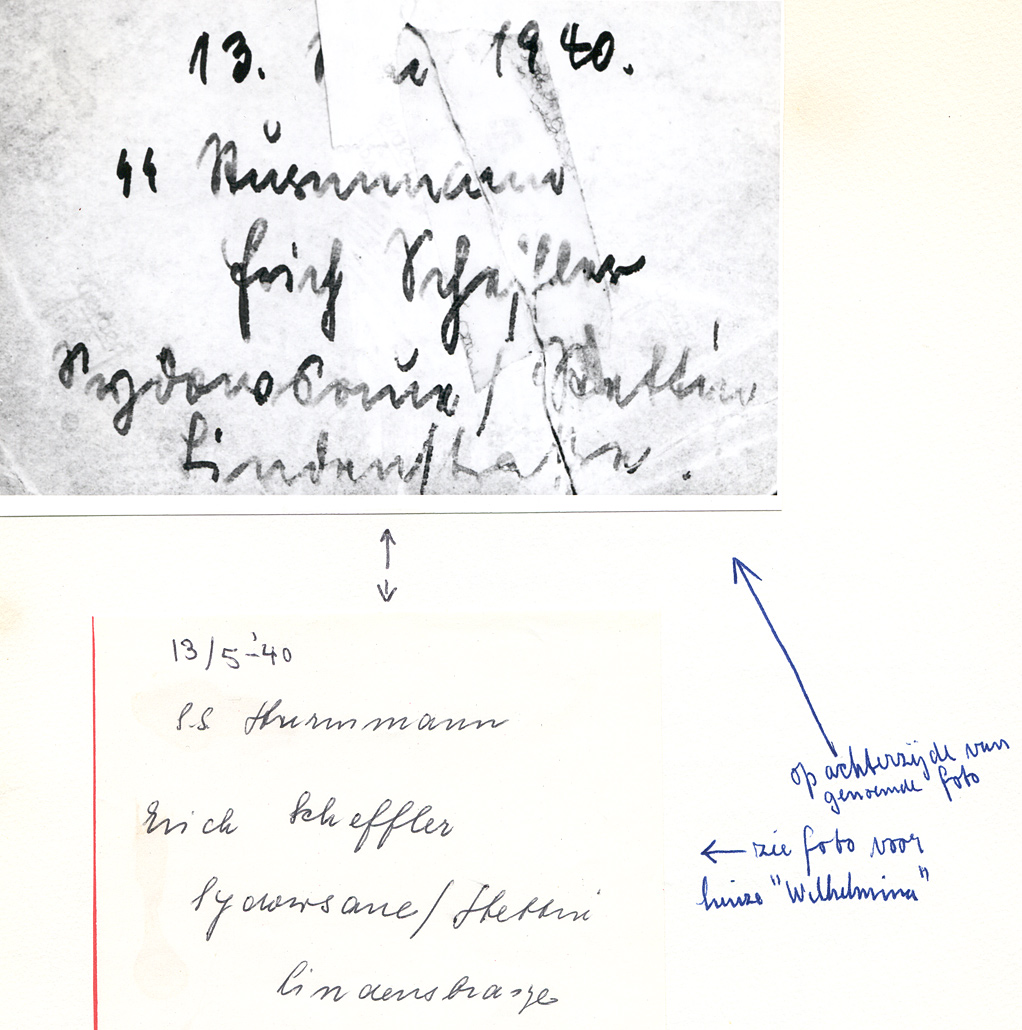 13. 1940.
SS Sturmmann
Erich Scheffler
Sydowsaue / Stettin
Lindenstraße.
13/5-'40
S.S Sturmmann
Erich Scheffler
Sydowsaue / Stettin
Lindenstrasze
op achterzijde van
genoemde foto
← zie foto voor
huize "Wilhelmina"